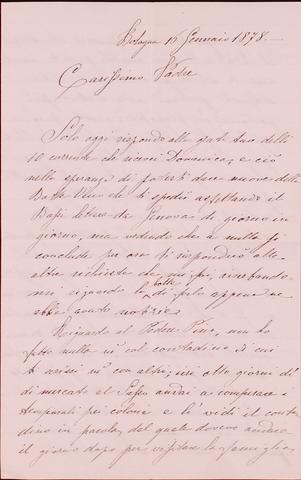 Bologna 16 Gennaio 1878.
Carissimo Padre
Solo oggi rispondo alla grat. tua delli
10 corrente che ricevei Domenica, e ciò
nella speranza di poterti dare nuove della
che ti spedii aspettando il
lettere da Genova di giorno in
giorno, ma vedendo che a nulla si
conclude per ora ti risponderò alle
altre richieste che mi fai, riserbando
mi riguardo la di appena ne
abbia avute notizie.
Riguardo al Podere Pino, non ho
fatto nulla nè col contadino di cui
ti scrissi nè con altri; ieri otto giorni dì
di mercato al andai a comperare i
pei coloni e là vidi il conta
dino in parola, dal quale dovevo andare
il giorno dopo per visitare la famiglia,